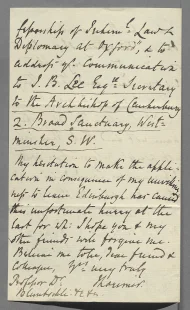 fessorship of Internl. Law &
Diplomacy at Oxford, & to
address yr. Communication
to J. B. Lee Esqre. Secretary
to the Archbishop of Canterbury
2. Broad Sanctuary, West-
minster, S. W.
My hesitation to make the appli-
cation in consequence of my unwilling-
ness to leave Edinburgh has caused
this unfortunate hurry at the
last for wh. I hope you & my
other friends will forgive me.
Believe me to be, dear friend &
Colleague, Yrs. very truly
Professor Dr. J. Lorimer.
Bluntschli &c &c